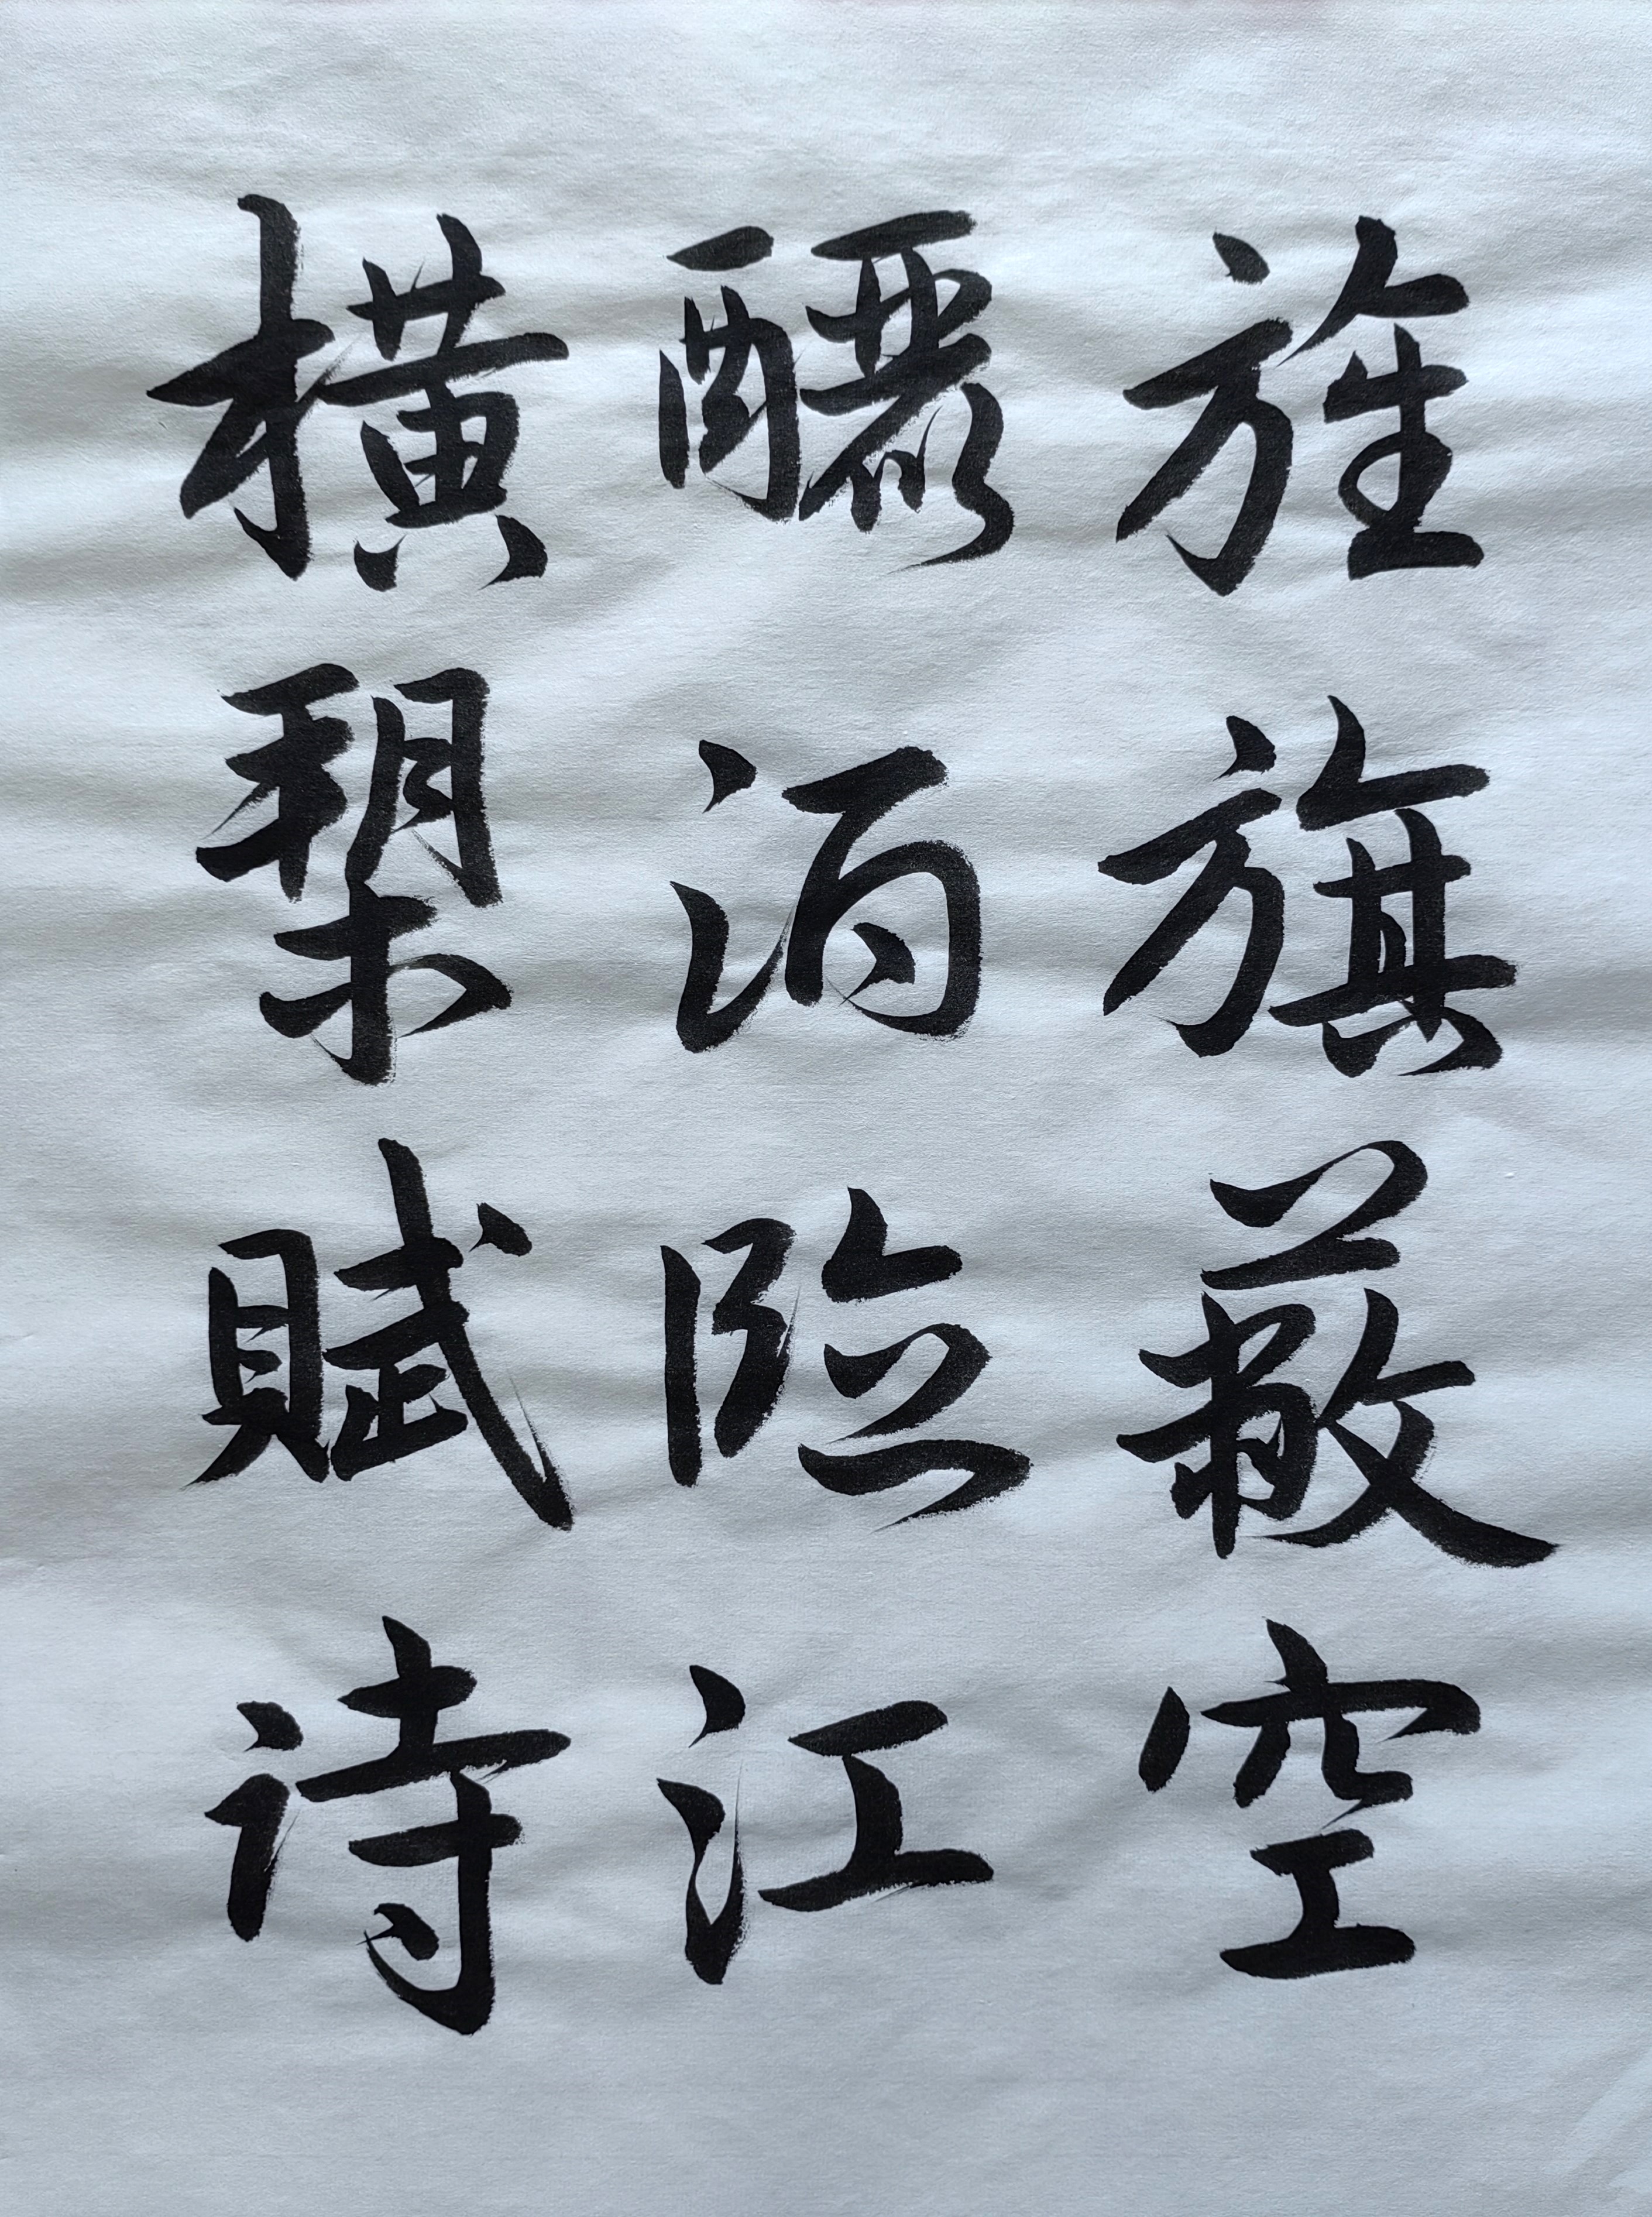 旌旗蔽空
釃酒臨江
橫槊賦詩